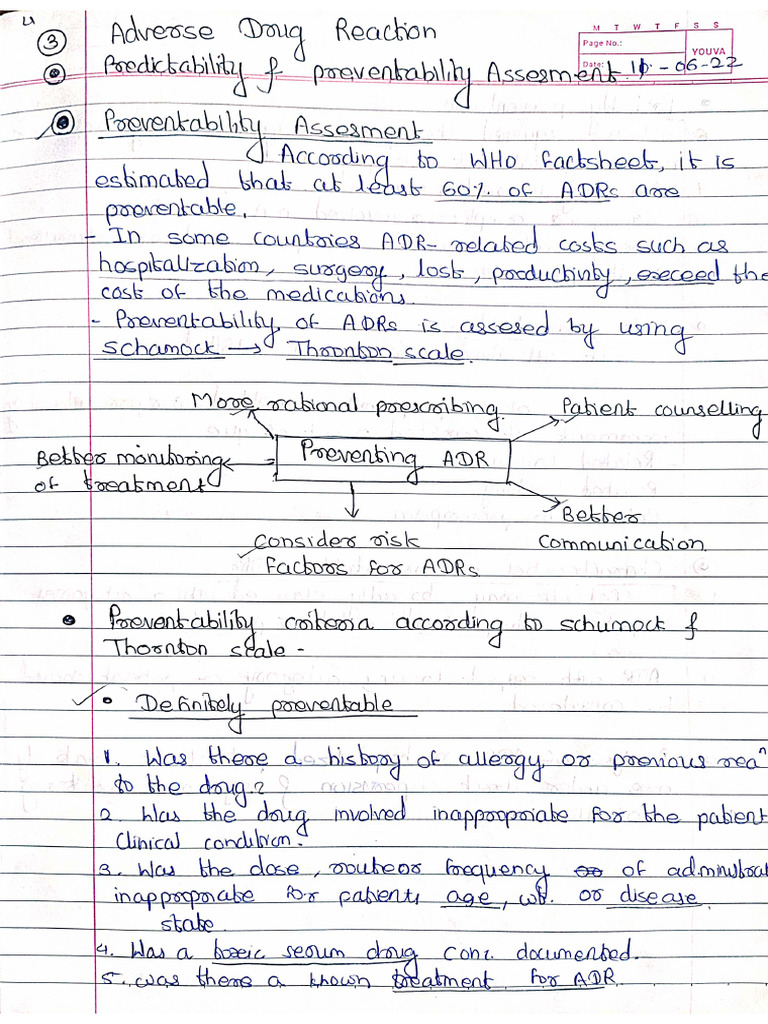 4
③ Adverse Drug Reaction
M T W T F S S
Page No.:
YOUVA
Date: 11 - 06-22
Predictability & preventability Assesment
Preventability Assesment
According to WHO factsheet, it is
estimated that at least 60% of ADRs are
preventable.
- In some countries ADR- related costs such as
hospitalization, surgery, lost, productinty, exceed the
cost of the medications.
- Preventability of ADRs is assesed by using
schamock → Thronton scale.
More rational prescribing.
Patient counselling
Better monitoring
of treatment
Preventing ADR
Better
communication.
consider risk
factors for ADRs
• Preventability criteria according to schumock &
Thornton scale -
• Definitely preventable
1. Was there a history of allergy or previous rean
to the drug?
2. Was the drug involved inappropriate for the patient
clinical condition.
3. Was the dose, route or frequency of administrat
inappropriate for patients age, wt. or disease
state
4. Was a toxic serum drug conc. documented.
5. was there a known treatment for ADR